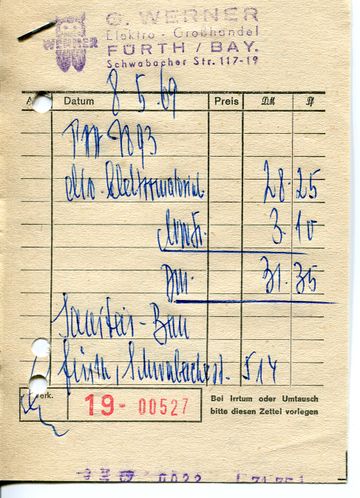 WERNER
G. WERNER
Elektro - Großhandel
FÜRTH / BAY.
Schwabacher Str. 117-19
Datum 8.5.69 Preis DM Pf
7893
Elektromaterial 28.25
Mwst. 3.10
Dm. 31.35
Sanitär-Bau
Fürth, Schwabacherst. 514
merk.
19- 00527
Bei Irrtum oder Umtausch
bitte diesen Zettel vorlegen
0022